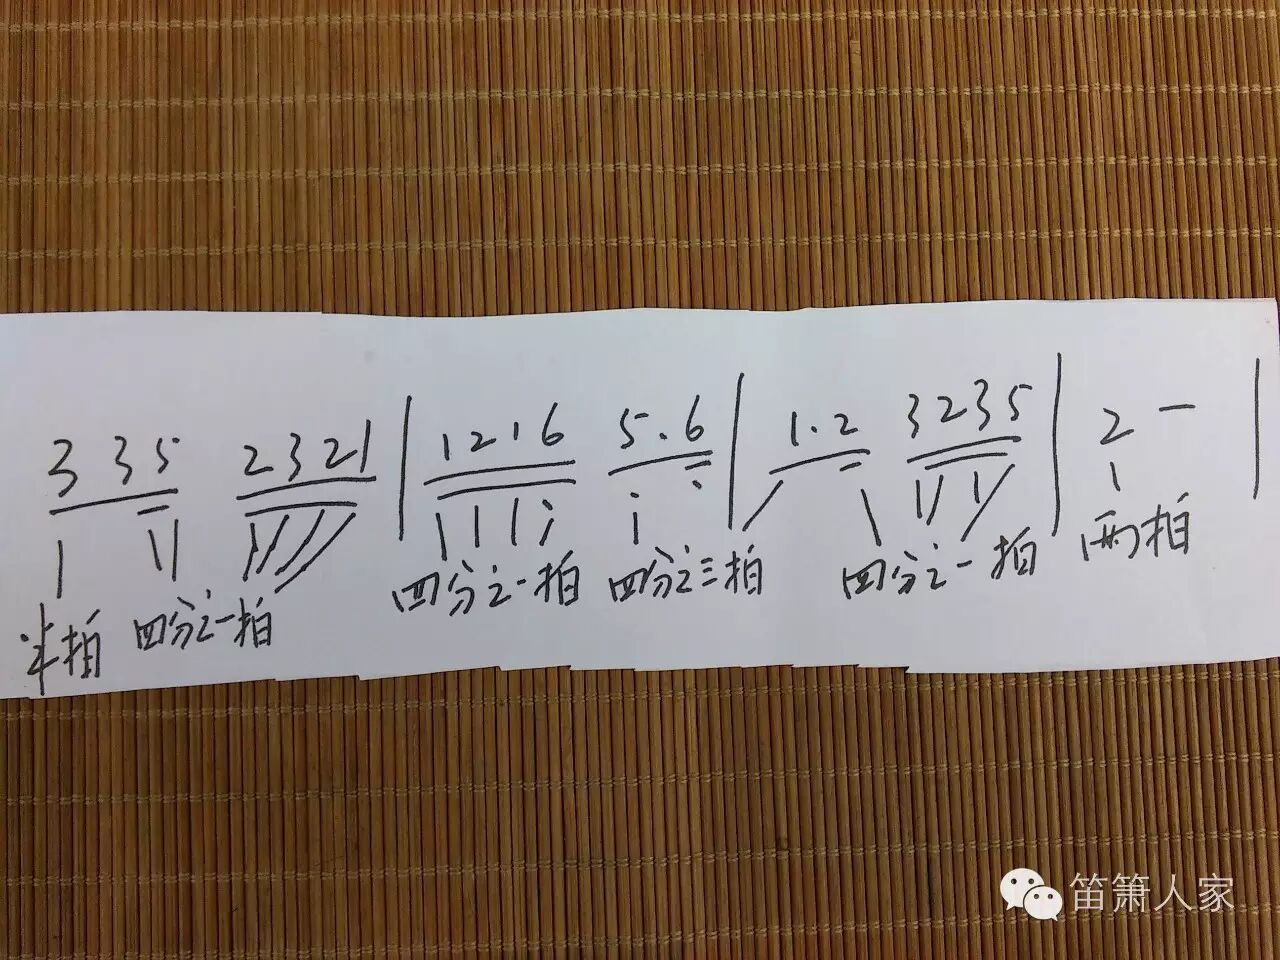 3 3 5 2 3 2 1 | 1 2 1 6 5 . 6 | 1 . 2 3 2 3 5 | 2 — |
半拍 四分之一拍 四分之一拍 四分之三拍 四分之一拍 两拍
笛箫人家